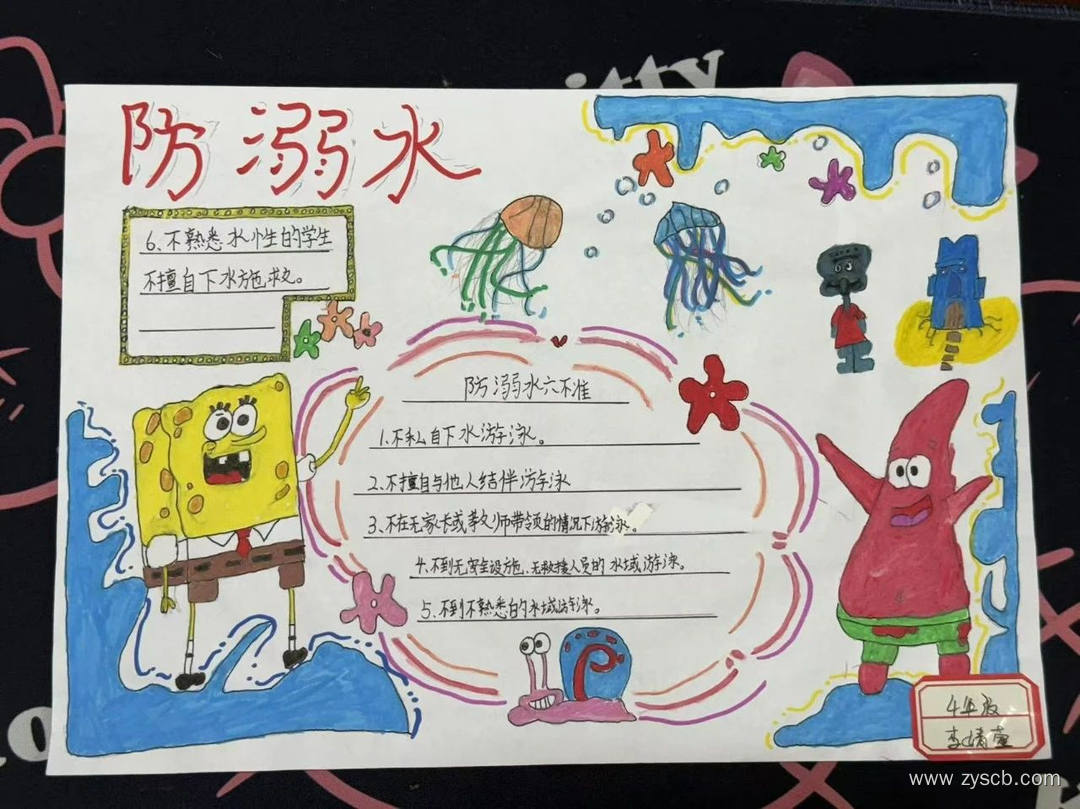 防溺水
6、不熟悉水性的学生
不擅自下水施救。
防溺水六不准
1、不私自下水游泳。
2、不擅自与他人结伴游泳
3、不在无家长或教师带领的情况下游泳。
4、不到无安全设施、无救援人员的水域游泳。
5、不到不熟悉的水域游泳。
4年级
www.zyscb.com